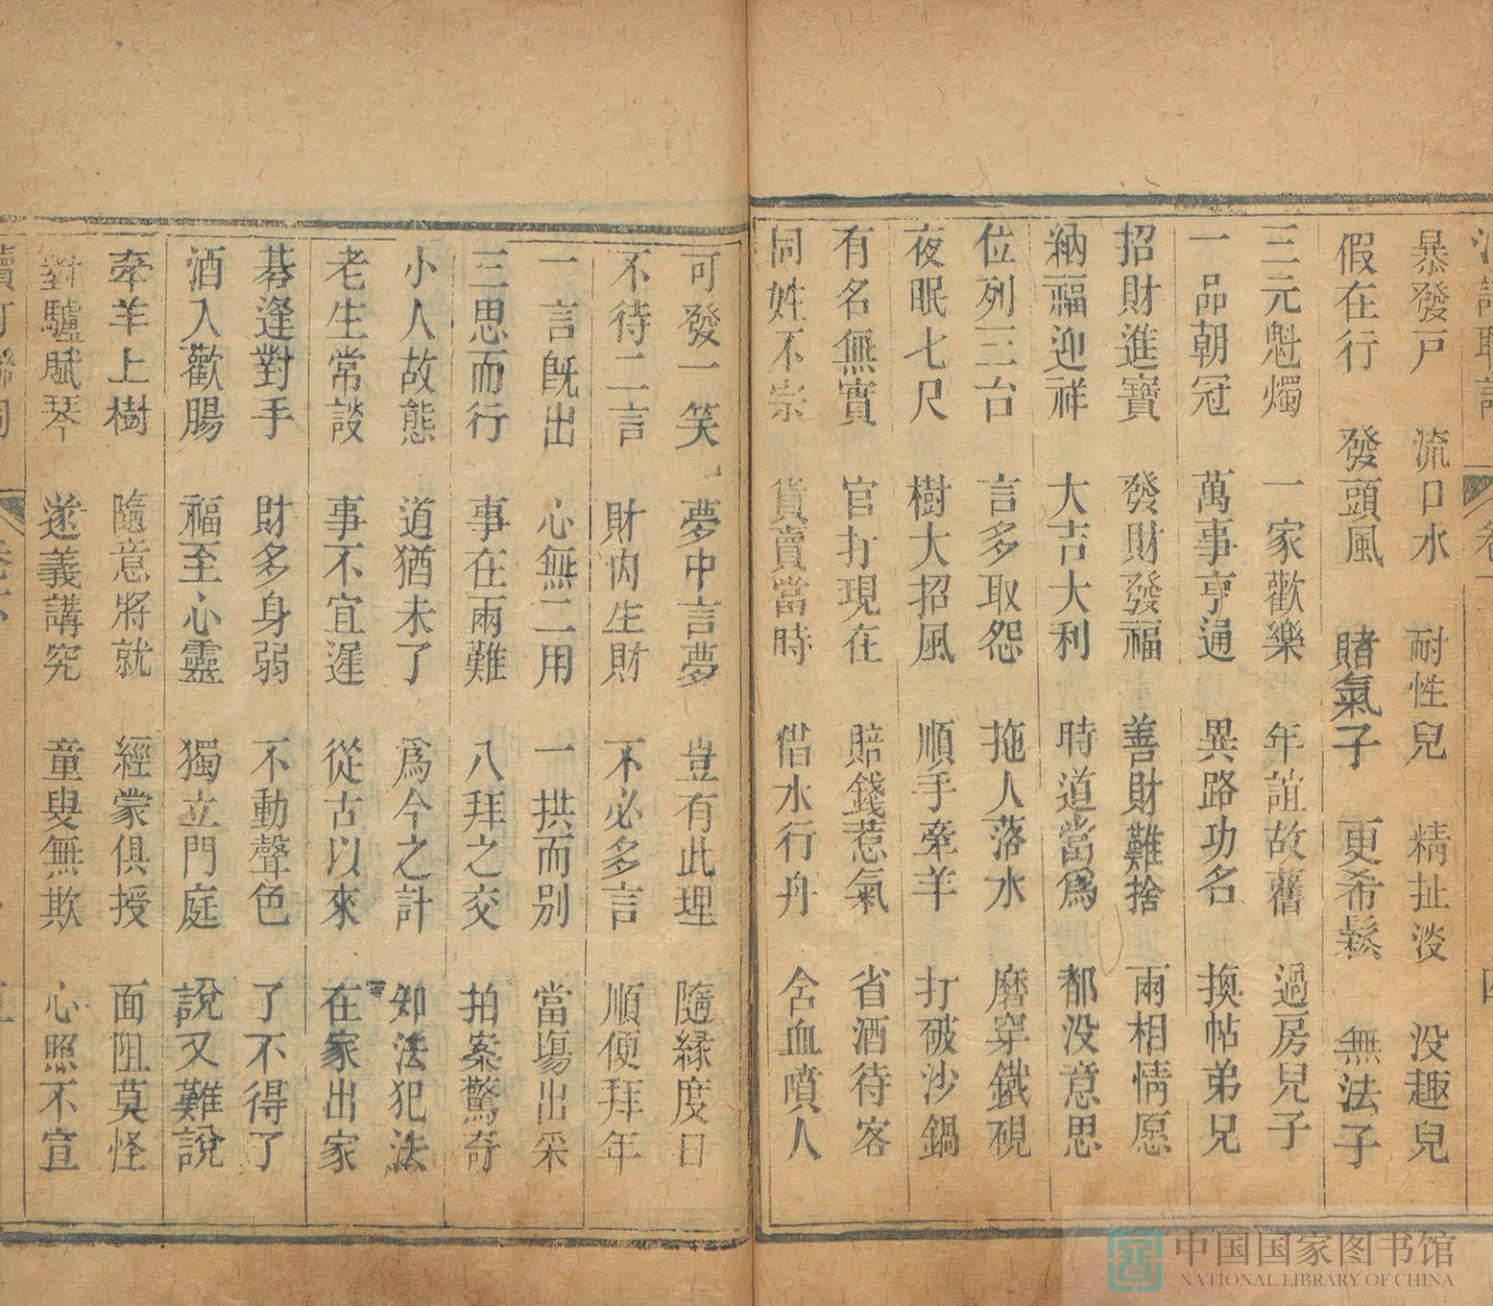 暴發戶 流口水 耐性兒 精扯淡 没趣兒
假在行 發頭風 賭氣子 更希鬆 無法子
三元魁燭 一家歡樂 年誼故舊 過房兒子
一品朝冠 萬事亨通 異路功名 換帖弟兄
招財進寶 發財發福 善財難捨 兩相情愿
納福迎祥 大吉大利 時道當爲 都没意思
位列三台 言多取怨 拖人落水 磨穿鐵硯
夜眠七尺 樹大招風 順手牽羊 打破沙鍋
有名無實 官打現在 賠錢惹氣 省酒待客
同姓不宗 貨賣當時 借水行舟 含血噴人
可發一笑 夢中言夢 豈有此理 隨緣度日
不待二言 財內生財 不必多言 順便拜年
一言旣出 心無二用 一拱而别 當塲出采
三思而行 事在兩難 八拜之交 拍案驚奇
小人故態 道猶未了 爲今之計 知法犯法
老生常談 事不宜遲 從古以來 在家出家
棊逢對手 財多身弱 不動聲色 了不得了
酒入歡腸 福至心靈 獨立門庭 說又難說
牽羊上樹 隨意將就 經蒙俱授 面阻莫怪
對驢賦琴 遂義講究 童叟無欺 心照不宣
中国国家图书馆
NATIONAL LIBRARY OF CHINA